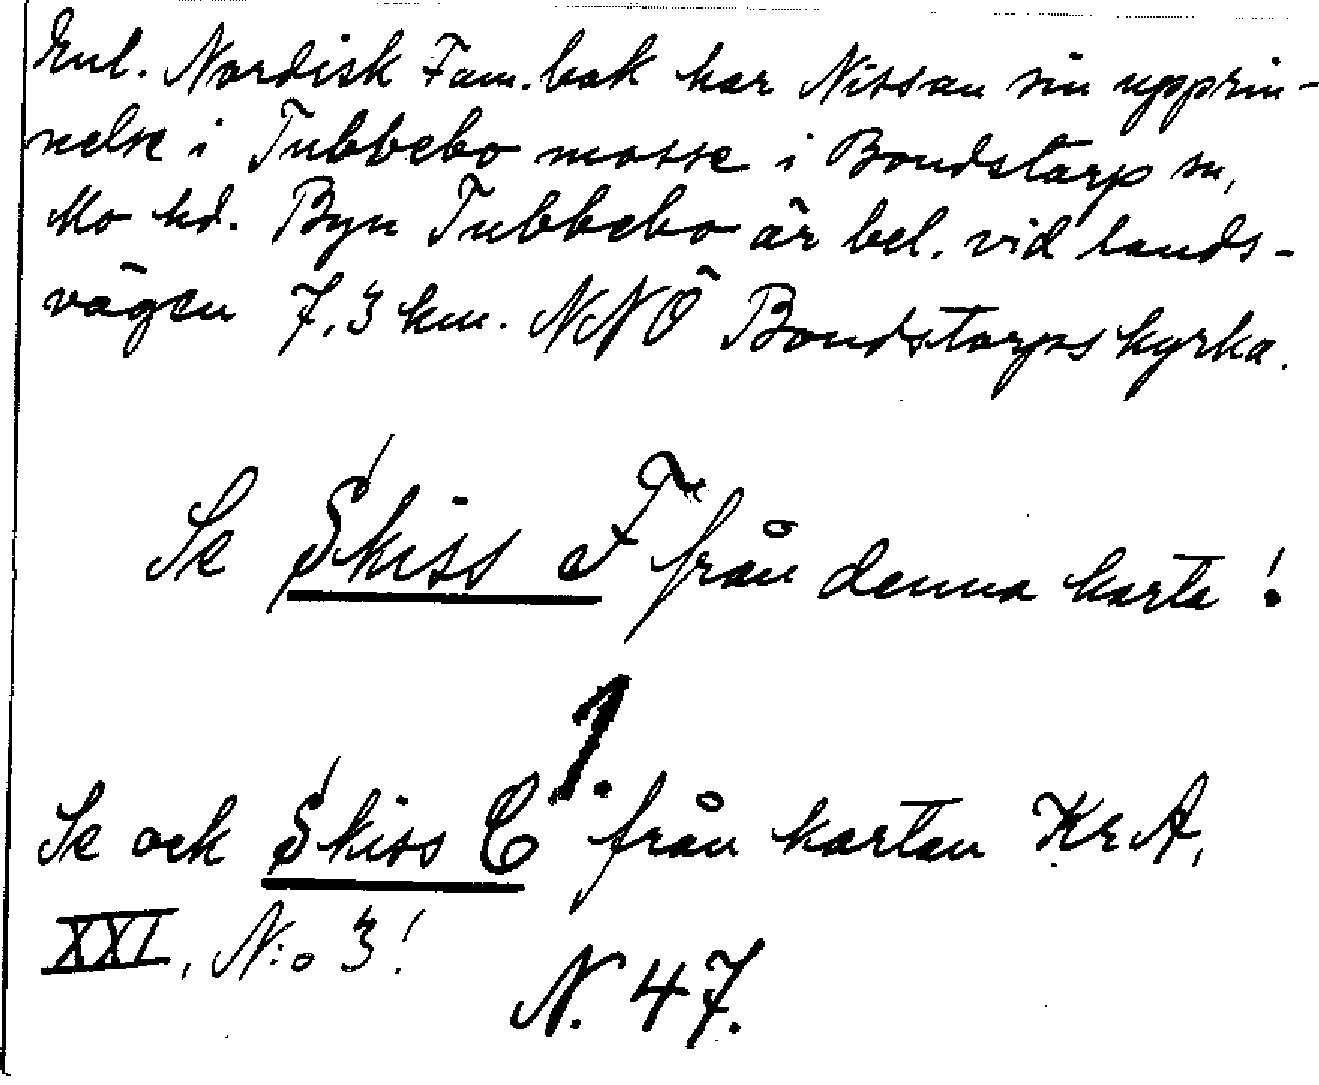 Enl. Nordisk Fam. bok har Nissan sin upprin-
nelse i Tubbebo mosse i Bondstorp sn,
Mo hd. Byn Tubbebo är bel. vid lands-
vägen 7,3 km. NNÖ Bondstorps kyrka.
Se Skiss F från denna karta!
1.
Se ock Skiss C från kartan Kr A,
XXI, N:o 3!
N. 47.